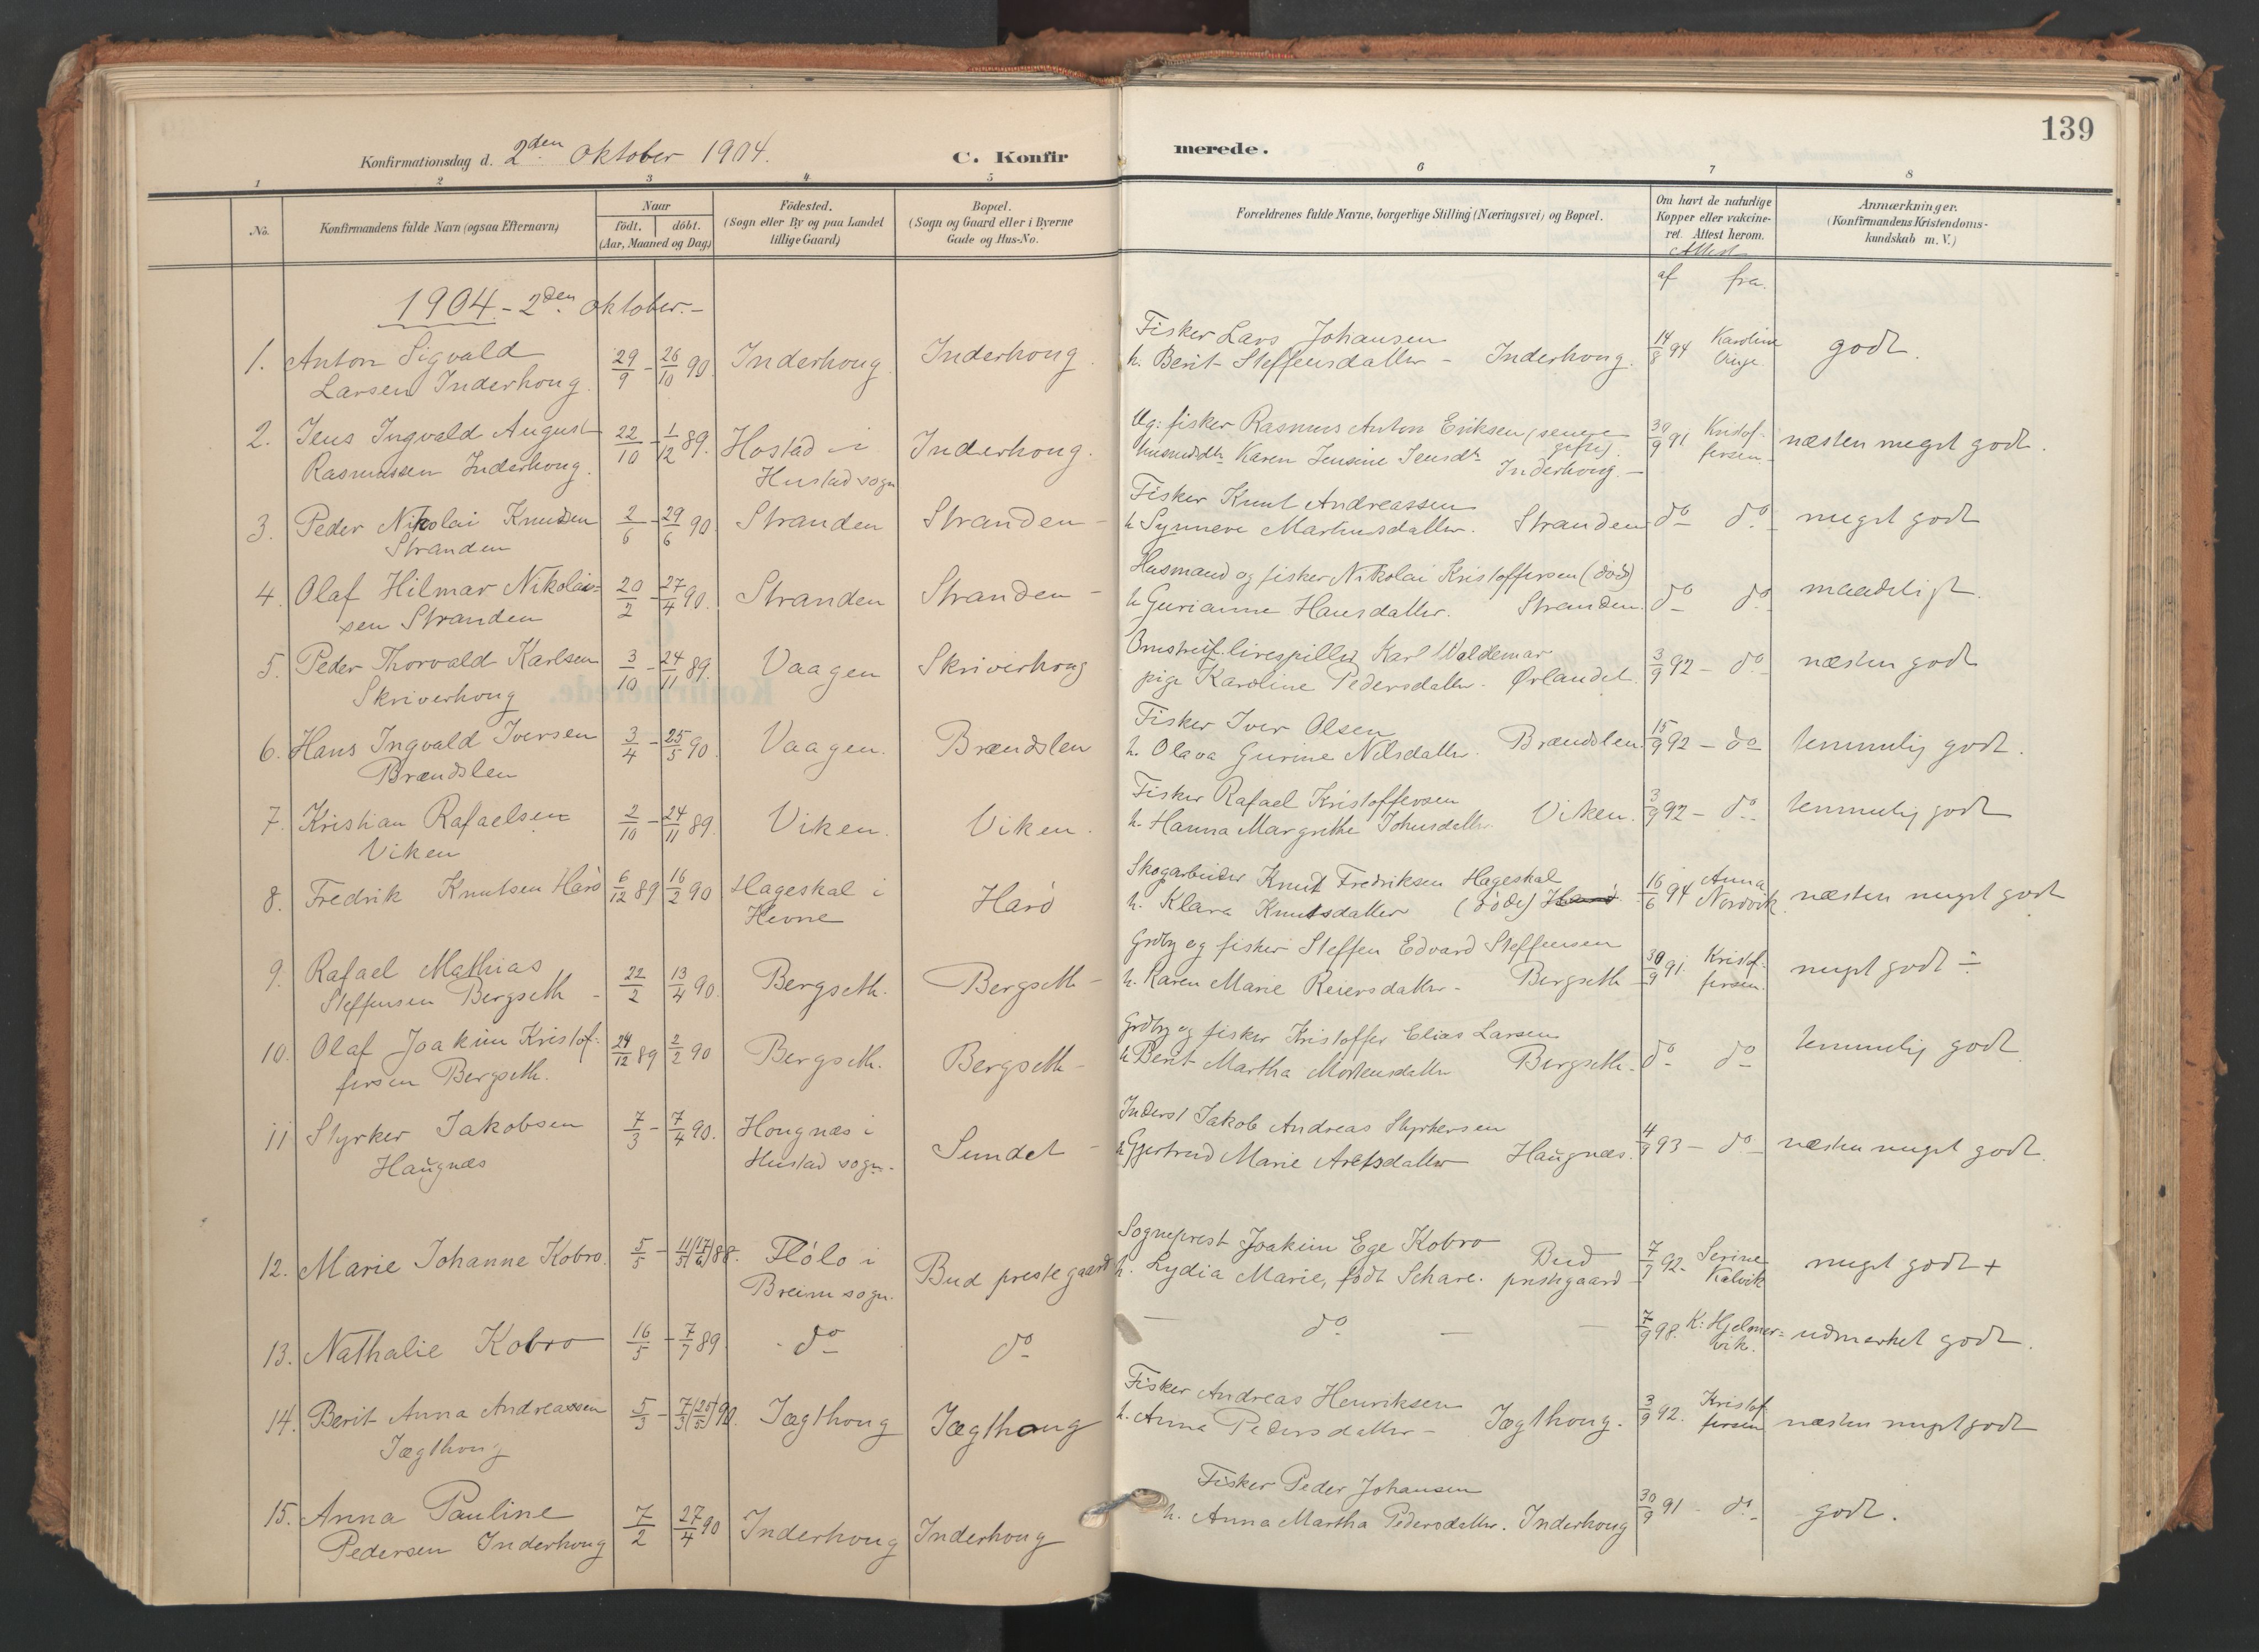 139
Konfirmationsdag d. 2den Oktober 1904.
C. Konfirmerede.
1 2 3 4 5 6 7 8
No.
Konfirmandens fulde Navn (ogsaa Efternavn)
Naar
födt. döbt.
(Aar, Maaned og Dag)
Födested.
(Sogn eller By og paa Landet
tillige Gaard)
Bopæl.
(Sogn og Gaard eller i Byerne
Gade og Hus-No.
Forældrenes fulde Navne, borgerlige Stilling (Næringsvei) og Bopæl.
Om havt de naturlige
Kopper eller vakcine-
ret. Attest herom.
Attest
af fra.
Anmærkninger.
(Konfirmandens Kristendoms-
kundskab m. V.)
1904 - 2den Oktober.-
1. Anton Sigvald
Larsen Inderhoug.
29/9 - 26/10 90. Inderhoug. Inderhoug.
Fisker Lars Johansen
h. Berit Steffensdatter - Inderhoug.
14/8 94 Karoline
godt.
2. Jens Ingvald August
Rasmussen Inderhoug.
22/10 - 1/12 89. Hostad i
Hustad sogn
Inderhoug.
Ug: fisker Rasmus Anton Eriksen (senere
gift).
Karen Jensine Jensdtr Inderhoug. -
30/9 91 Kristof-
fersen
næsten meget godt.
3. Peder Nikolai Knudsen
Stranden
2/6 - 29/6 90. Stranden Stranden -
Fisker Knut Andreassen
h Synneve Martinusdatter. Stranden
do do meget godt
4. Olaf Hilmar Nikolai-
sen Stranden
20/2 - 27/4 90. Stranden Stranden -
Husmand og fisker Nikolai Kristoffersen (död)
h Gurianne Hansdatter. Stranden.
do do maadeligt.
5. Peder Thorvald Karlsen
Skriverhoug
3/10 - 24/11 89. Vaagen Skriverhoug
Omstreif. lirespiller Karl Waldemar
pige Karoline Pedersdatter. Ørlandet.
3/9 92 - do næsten godt
6. Hans Ingvald Iversen
Brændslen
3/4 - 25/5 90. Vaagen. Brændslen
Fisker Iver Olsen
h. Olava Gurine Nilsdatter. Brændslen.
15/9 92 - do temmelig godt.
7. Kristian Rafaelsen
Viken
2/10 - 24/11 89. Viken. Viken.
Fisker Rafael Kristoffersen
h. Hanna Margrethe Johnsdatter. Viken.
3/9 92 - do temmelig godt
8. Fredrik Knutsen Harö
6/12 89 16/2 90 Hageskal i
Hevne
Harö
Skogarbeider Knut Fredriksen Hageskal
h. Klara Knutsdatter (döde) Harö
16/6 94 Anna
Nordvik
næsten meget godt
9. Rafael Mathias
Steffensen Bergseth -
22/2 13/4 90. Bergseth. Bergseth -
Grdbr og fisker Steffen Edvard Steffensen
h. Karen Marie Reiersdatter - Bergseth
30/9 91. Kristof-
fersen.
meget godt ÷
10. Olaf Joakim Kristof-
fersen Bergseth.
24/12 89 2/2 90 Bergseth. Bergseth -
Grdbr og fisker Kristoffer Elias Larsen
h Berit Martha Mortensdatter Bergseth.
do do temmelig godt
11 Styrker Jakobsen
Haugnæs
7/3 - 7/4 90. Hougnæs i
Hustad sogn.
Sundet -
Inderst Jakob Andreas Styrkersen
h Gjertrud Marie Aretsdatter Haugnæs.
4/9 93 - do næsten meget godt.
12. Marie Johanne Kobro.
5/5 - 11/5 (17/6) 88. Flölo i
Breim sogn.
Bud prestegaard
Sogneprest Joakim Ege Kobro
h. Lydia Marie, födt Schare. Bud
prestegaard
7/7 92. Serine
Kalvik
meget godt +
13. Nathalie Kobro
16/5 - 7/7 89 do do
- do - -
7/9 98. K. Hjelmer-
vik.
udmerket godt.
14. Berit Anna Andreassen
Jægthoug
5/3 - 7/3 (25/5) 90. Jægthoug Jægthoug
Fisker Andreas Henriksen
h. Anna Pedersdatter - Jægthoug.
3/9 92. Kristof
fersen
næsten meget godt
15. Anna Pauline
Pedersen Inderhoug
7/2 27/4 90 Inderhoug Inderhoug
Fisker Peder Johansen
h. Anna Martha Pedersdatter. Inderhoug
30/9 91 - do godt.